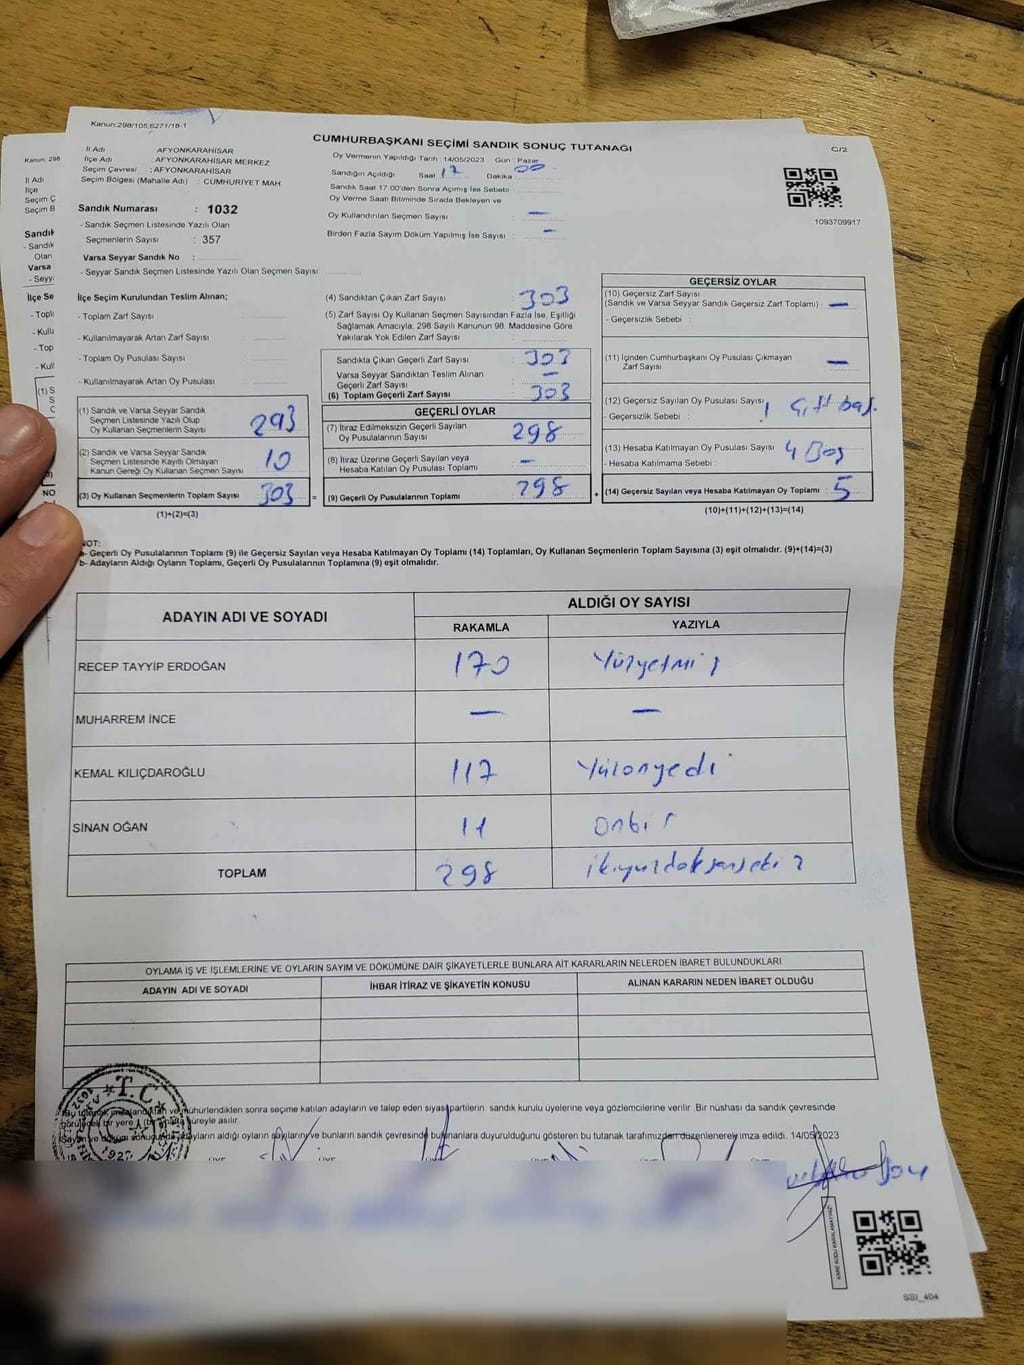 Kanun:298/105;6271/18-1
CUMHURBAŞKANI SEÇİMİ SANDIK SONUÇ TUTANAĞI
C/2
İl Adı : AFYONKARAHİSAR
İlçe Adı : AFYONKARAHİSAR MERKEZ
Seçim Çevresi : AFYONKARAHİSAR
Seçim Bölgesi (Mahalle Adı) : CUMHURİYET MAH
Oy Vermenin Yapıldığı Tarih : 14/05/2023 Gün : Pazar
Sandığın Açıldığı Saat 17 Dakika 00
Sandık Saat 17.00'den Sonra Açımış İse Sebebi
Oy Verme Saati Bitiminde Sırada Bekleyen ve
Oy Kullandırılan Seçmen Sayısı : —
Birden Fazla Sayım Döküm Yapılmış İse Sayısı : —
1093709917
Sandık Numarası : 1032
- Sandık Seçmen Listesinde Yazılı Olan
Seçmenlerin Sayısı : 357
Varsa Seyyar Sandık No :
- Seyyar Sandık Seçmen Listesinde Yazılı Olan Seçmen Sayısı
İlçe Seçim Kurulundan Teslim Alınan;
- Toplam Zarf Sayısı :
- Kullanılmayarak Artan Zarf Sayısı :
- Toplam Oy Pusulası Sayısı :
- Kullanılmayarak Artan Oy Pusulası :
(1) Sandık ve Varsa Seyyar Sandık
Seçmen Listesinde Yazılı Olup
Oy Kullanan Seçmenlerin Sayısı 293
(2) Sandık ve Varsa Seyyar Sandık
Seçmen Listesinde Kayıtlı Olmayan
Kanun Gereği Oy Kullanan Seçmen Sayısı 10
(3) Oy Kullanan Seçmenlerin Toplam Sayısı 303 =
(1)+(2)=(3)
(4) Sandıktan Çıkan Zarf Sayısı : 303
(5) Zarf Sayısı Oy Kullanan Seçmen Sayısından Fazla İse, Eşitliği
Sağlamak Amacıyla, 298 Sayılı Kanunun 98. Maddesine Göre
Yakılarak Yok Edilen Zarf Sayısı :
Sandıkta Çıkan Geçerli Zarf Sayısı : 303
Varsa Seyyar Sandıktan Teslim Alınan
Geçerli Zarf Sayısı : —
(6) Toplam Geçerli Zarf Sayısı : 303
GEÇERLİ OYLAR
(7) İtiraz Edilmeksizin Geçerli Sayılan
Oy Pusulalarının Sayısı : 298
(8) İtiraz Üzerine Geçerli Sayılan veya
Hesaba Katılan Oy Pusulası Toplamı : —
(9) Geçerli Oy Pusulalarının Toplamı : 298 +
GEÇERSİZ OYLAR
(10) Geçersiz Zarf Sayısı
(Sandık ve Varsa Seyyar Sandık Geçersiz Zarf Toplamı) : —
- Geçersizlik Sebebi :
(11) İçinden Cumhurbaşkanı Oy Pusulası Çıkmayan
Zarf Sayısı : —
(12) Geçersiz Sayılan Oy Pusulası Sayısı : 1 Çift bas.
- Geçersizlik Sebebi :
(13) Hesaba Katılmayan Oy Pusulası Sayısı : 4 Boş
- Hesaba Katılmama Sebebi :
(14) Geçersiz Sayılan veya Hesaba Katılmayan Oy Toplamı : 5
(10)+(11)+(12)+(13)=(14)
NOT:
a- Geçerli Oy Pusulalarının Toplamı (9) ile Geçersiz Sayılan veya Hesaba Katılmayan Oy Toplamı (14) Toplamları, Oy Kullanan Seçmenlerin Toplam Sayısına (3) eşit olmalıdır. (9)+(14)=(3)
b- Adayların Aldığı Oyların Toplamı, Geçerli Oy Pusulalarının Toplamına (9) eşit olmalıdır.
ADAYIN ADI VE SOYADI
ALDIĞI OY SAYISI
RAKAMLA YAZIYLA
RECEP TAYYİP ERDOĞAN 170 Yüzyetmiş
MUHARREM İNCE — —
KEMAL KILIÇDAROĞLU 117 Yüzonyedi
SİNAN OĞAN 11 onbir
TOPLAM 298 ikiyüzdoksansekiz
OYLAMA İŞ VE İŞLEMLERİNE VE OYLARIN SAYIM VE DÖKÜMÜNE DAİR ŞİKAYETLERLE BUNLARA AİT KARARLARIN NELERDEN İBARET BULUNDUKLARI
ADAYIN ADI VE SOYADI İHBAR İTİRAZ VE ŞİKAYETİN KONUSU ALINAN KARARIN NEDEN İBARET OLDUĞU
T.C
1927
Bu tutanak imzalandıktan ve mühürlendikten sonra seçime katılan adayların ve talep eden siyasi partilerin sandık kurulu üyelerine veya gözlemcilerine verilir. Bir nüshası da sandık çevresinde
görülecek bir yere süreyle asılır.
Sayım ve döküm sonucunda adayların aldığı oyların sayılarını ve bunların sandık çevresinde bulunanlara duyurulduğunu gösteren bu tutanak tarafımızdan düzenlenerek imza edildi. 14/05/2023
KARE KODU KARALAMAYINIZ!
SSI_404